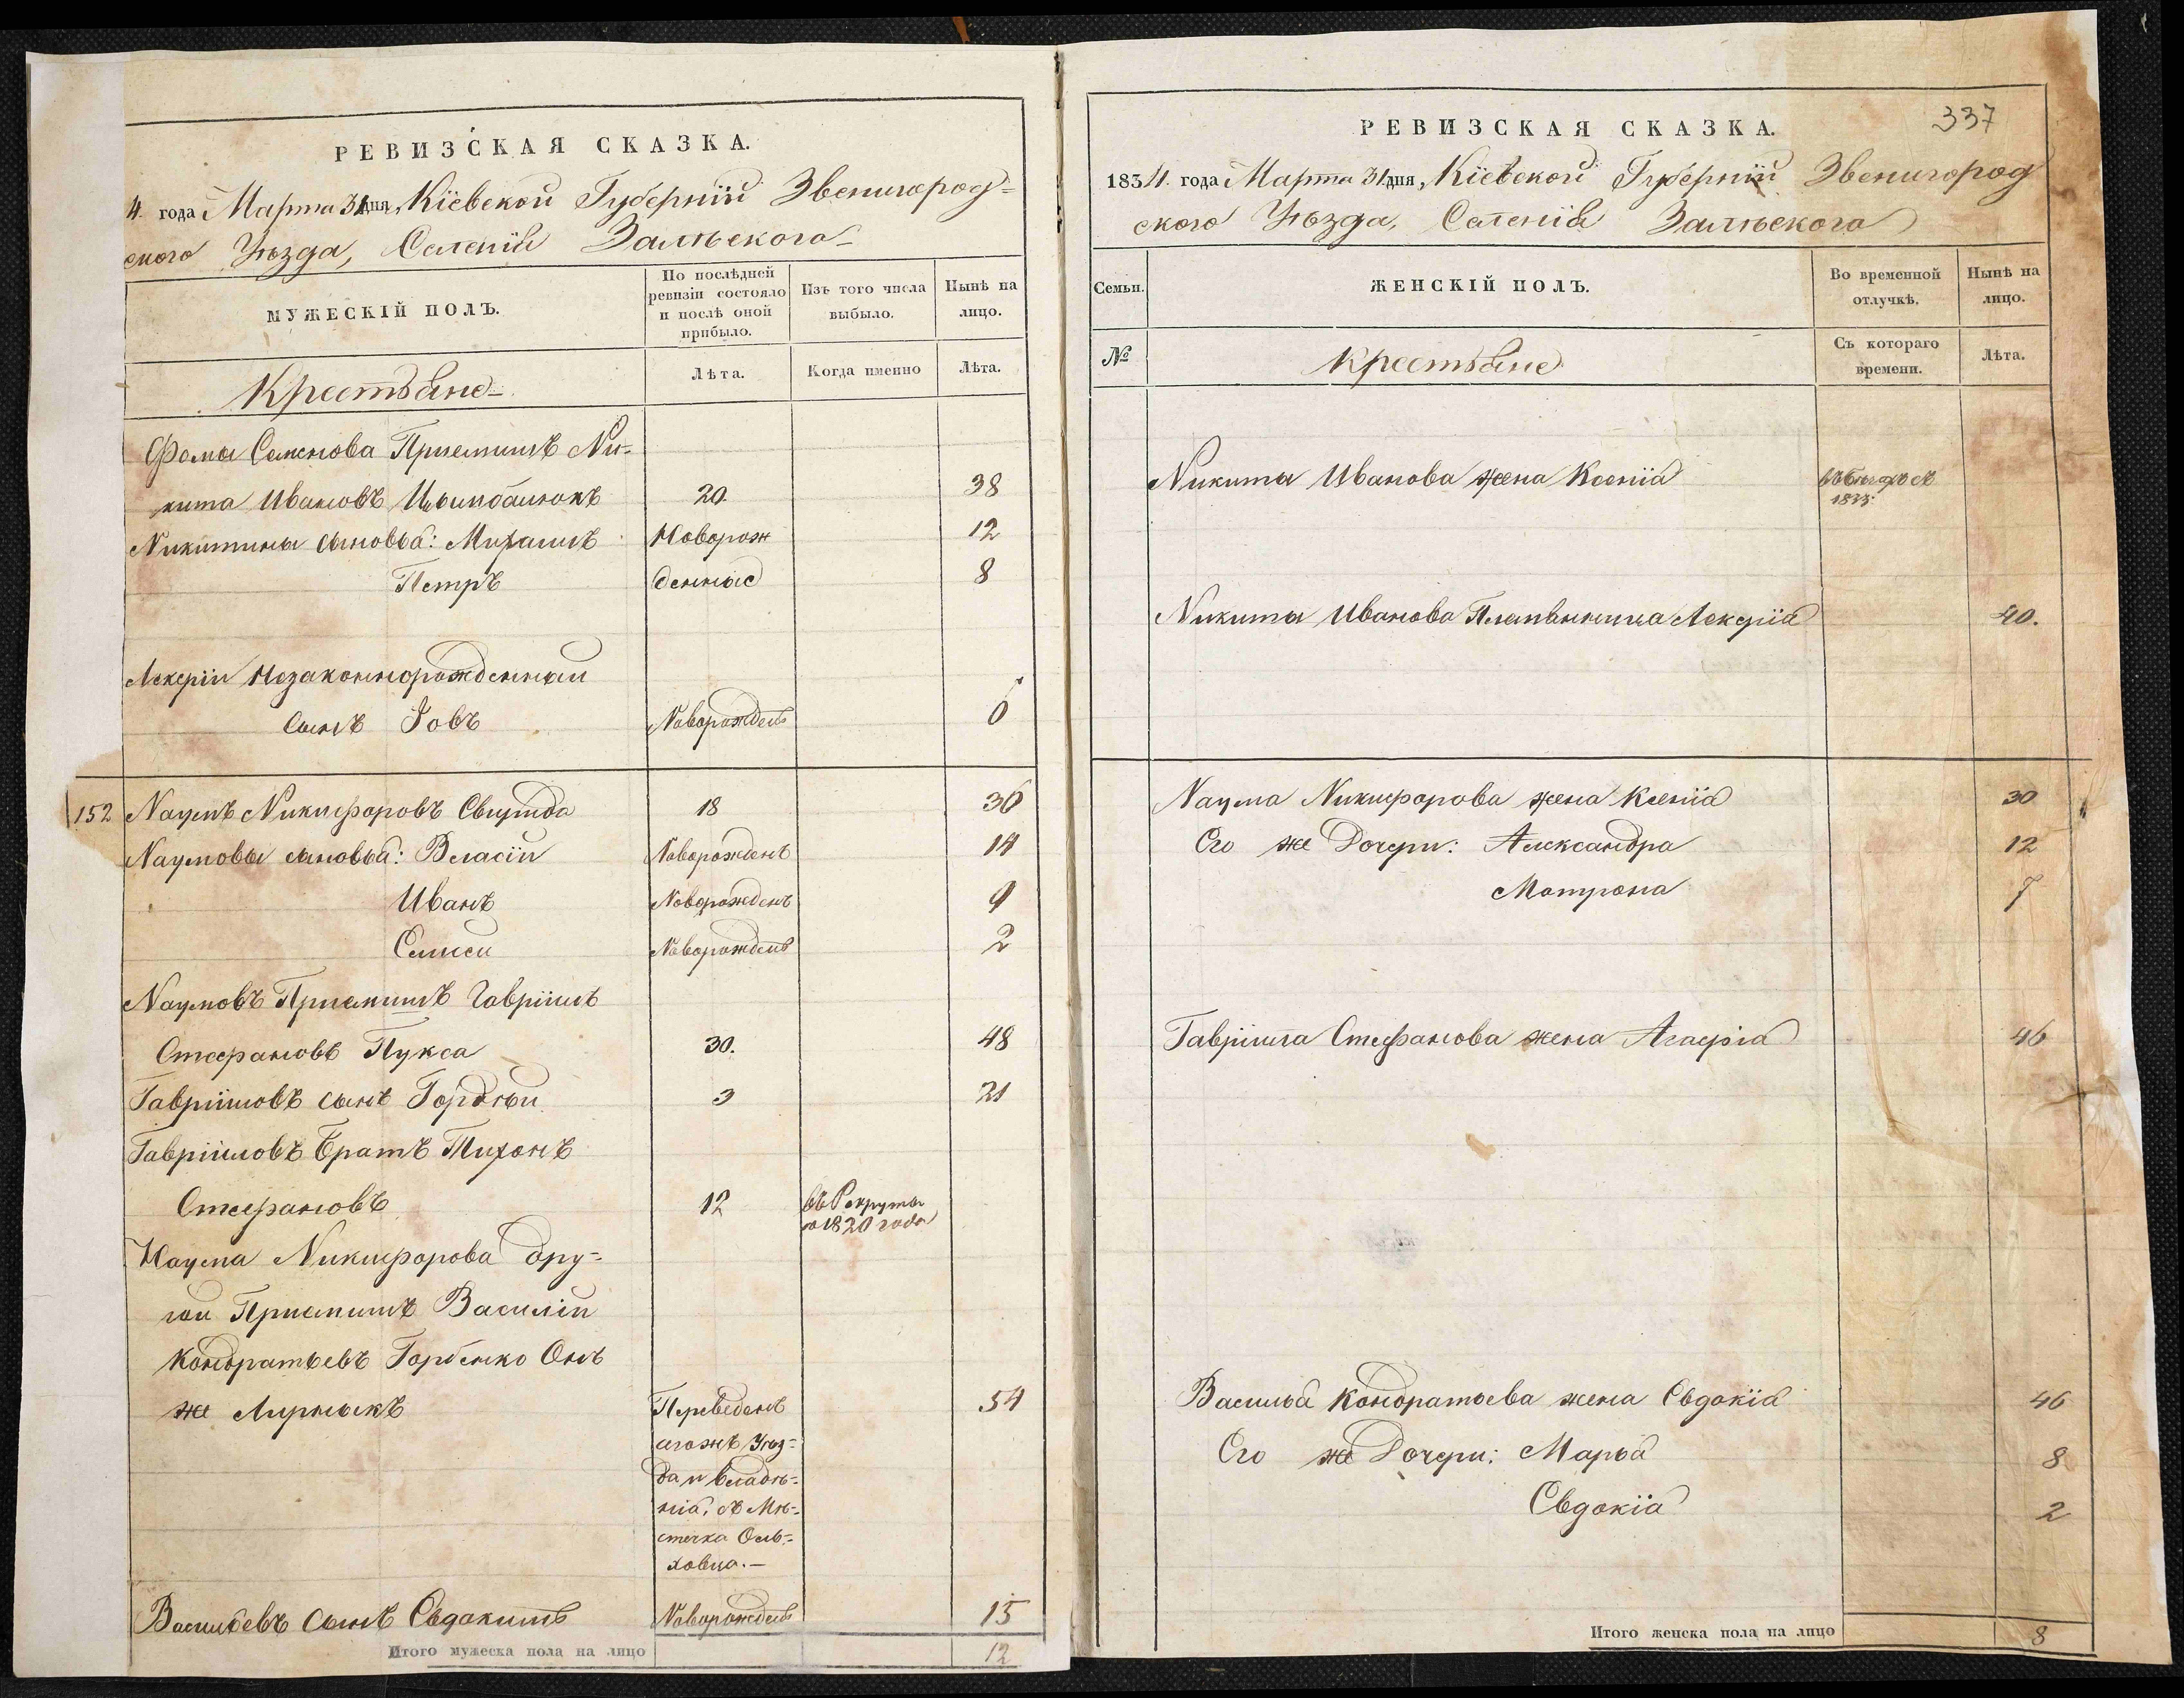 РЕВИЗСКАЯ СКАЗКА.
4. года Марта 31 дня, Кіевской Губерніи Звенигород-
ского Уѣзда, Селенія Залѣского
МУЖЕСКІЙ ПОЛЪ.
По послѣдней ревизіи состояло и послѣ оной прибыло.
Изъ того числа выбыло.
Нынѣ на лицо.
Лѣта.
Когда именно
Лѣта.
Крестьяне
Фомы Семенова Приемышъ Ни-
кита Ивановъ 20. 38
Никитины сыновья: Михаилъ Новорож 12
Петръ денные 8
Лукеріи Незаконнорожденный
Сынъ Іовъ Новорожденъ 6
152 Наумъ Никифоровъ 18 36
Наумовы сыновья: Власій Новорожденъ 14
Иванъ Новорожденъ 9
Новорожденъ 2
Наумовъ Приемышъ Гавріилъ
Стефановъ Пукса 30. 48
Гавріиловъ сынъ Гордѣй 3 21
Гавріиловъ Братъ Тихонъ
Стефановъ 12 въ Рекруты
1820 года
Наума Никифорова дру-
гой Приемышъ Василій
Кондратьевъ Горбенко Онъ
же Лирныкъ Переведенъ 54
Уѣз-
да и владѣ-
нія, съ Мѣ-
стечка Оль-
ховца.—
Васильевъ Сынъ Евдокимъ Новорожденъ 15
Итого мужеска пола на лицо 12
337
РЕВИЗСКАЯ СКАЗКА.
1834. года Марта 31 дня, Кіевской Губерніи Звенигород
ского Уѣзда, Селенія Залѣского
Семьи.
ЖЕНСКІЙ ПОЛЪ.
Во временной отлучкѣ.
Нынѣ на лицо.
№
Крестьяне
Съ котораго времени.
Лѣта.
Никиты Иванова жена Ксенія въ съ
1833:
Никиты Иванова Племянница Лукерія 40.
Наума Никифорова жена Ксенія 30
Его же Дочери: Александра 12
Матрона 7
Гавріила Стефанова жена 46
Василья Кондратьева жена Евдокія 46
Его же Дочери: Марья 8
Евдокія 2
Итого женска пола на лицо 8